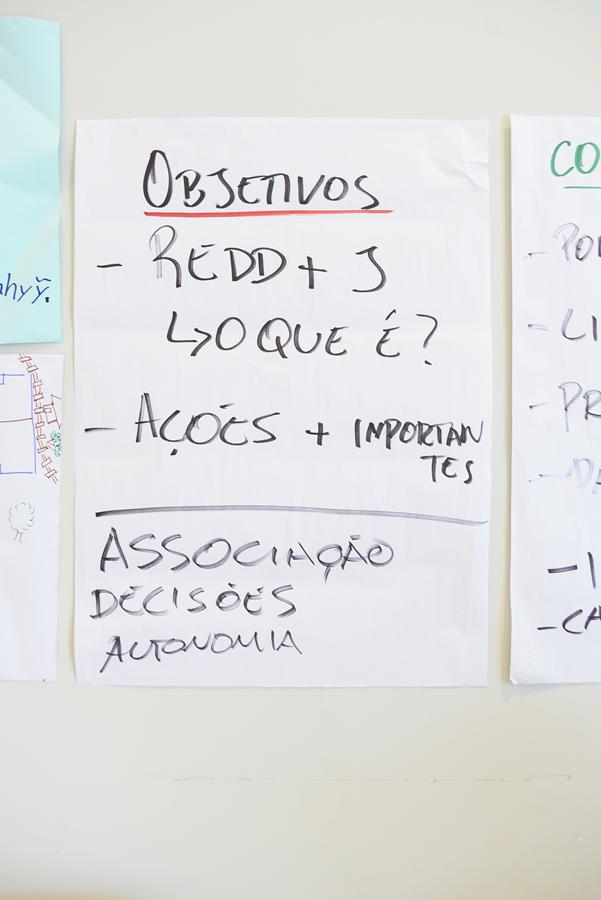 OBJETIVOS
- REDD+ J
↳O QUE É?
- AÇÕES + IMPORTAN
TES
ASSOCIAÇÃO
DECISÕES
AUTONOMIA
CO
- PO
- LI
- PR
- DA
- I
- CA